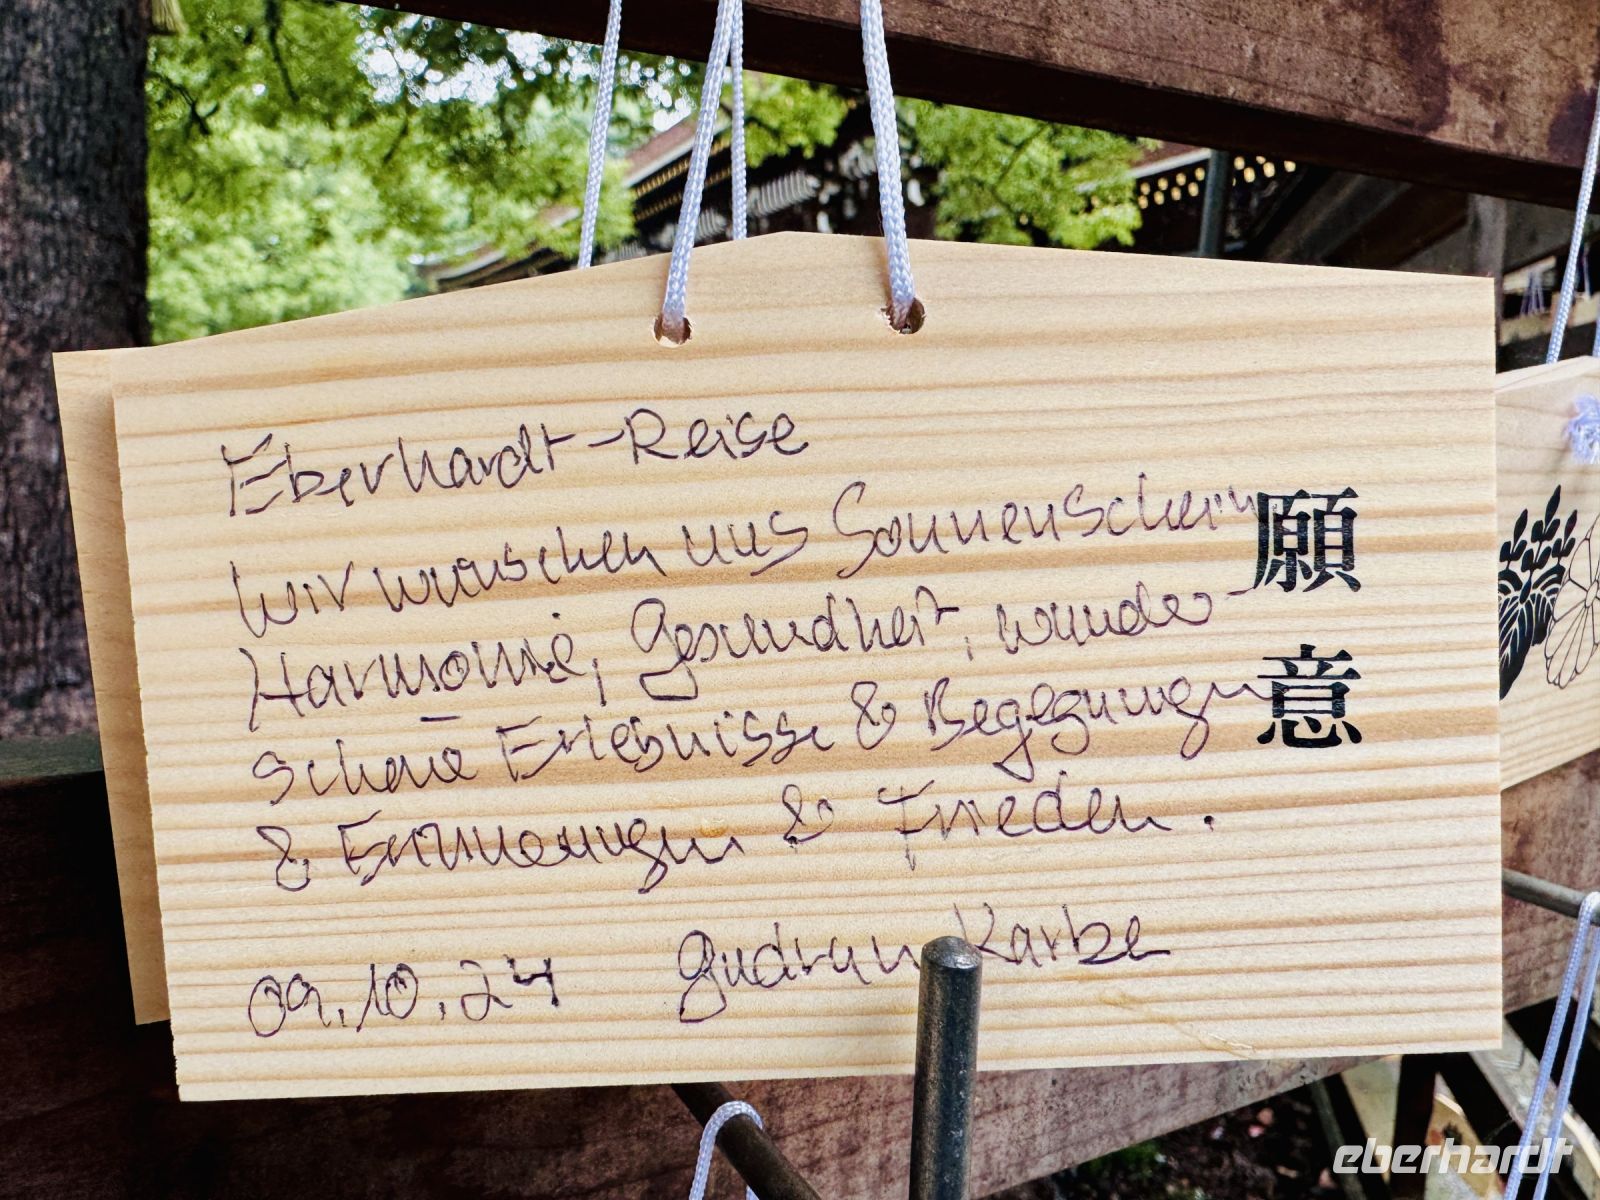 Eberhardt-Reise
Wir wünschen uns Sonnenschein
Harmonie, Gesundheit, wunder-
schöne Erlebnisse & Begegnungen
& Erinnerungen & Frieden.
09.10.24 Gudrun Karbe
願意
eberhardt